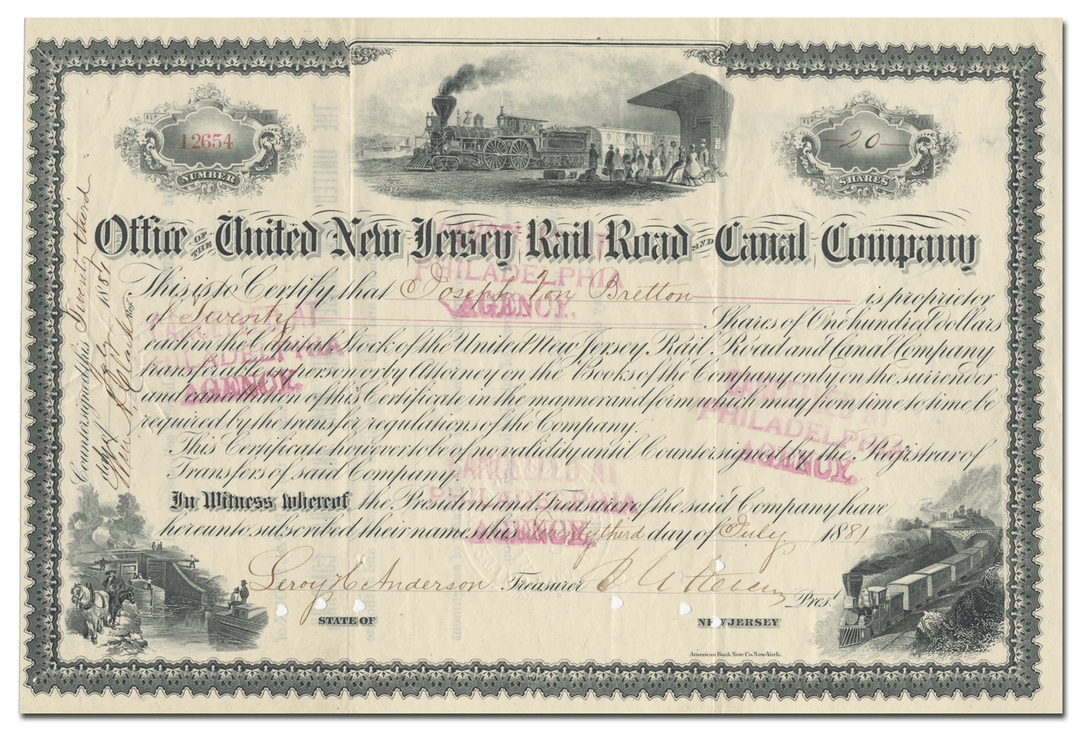 12654
NUMBER
20
SHARES
Office OF THE United New Jersey Rail Road AND Canal Company
This is to Certify that Joseph Von Bretton is proprietor
of Twenty Shares of One hundred dollars
each in the Capital Stock of the United New Jersey Rail Road and Canal Company
transferable in person or by Attorney on the Books of the Company only on the surrender
and cancellation of this Certificate in the manner and form which may from time to time be
required by the transfer regulations of the Company.
This Certificate however to be of no validity until Countersigned by the Registrar of
Transfers of said Company.
In Witness whereof the President and Treasurer of the said Company have
hereunto subscribed their names this twenty third day of July 1881
Leroy H. Anderson Treasurer Pres.t
STATE OF NEW JERSEY
American Bank Note Co. New-York.
Countersigned this Twenty third
day of July 1881
CANCELLED AT
PHILADELPHIA
AGENCY.
CANCELLED AT
PHILADELPHIA
AGENCY.
CANCELLED AT
PHILADELPHIA
AGENCY.
CANCELLED AT
PHILADELPHIA
AGENCY.